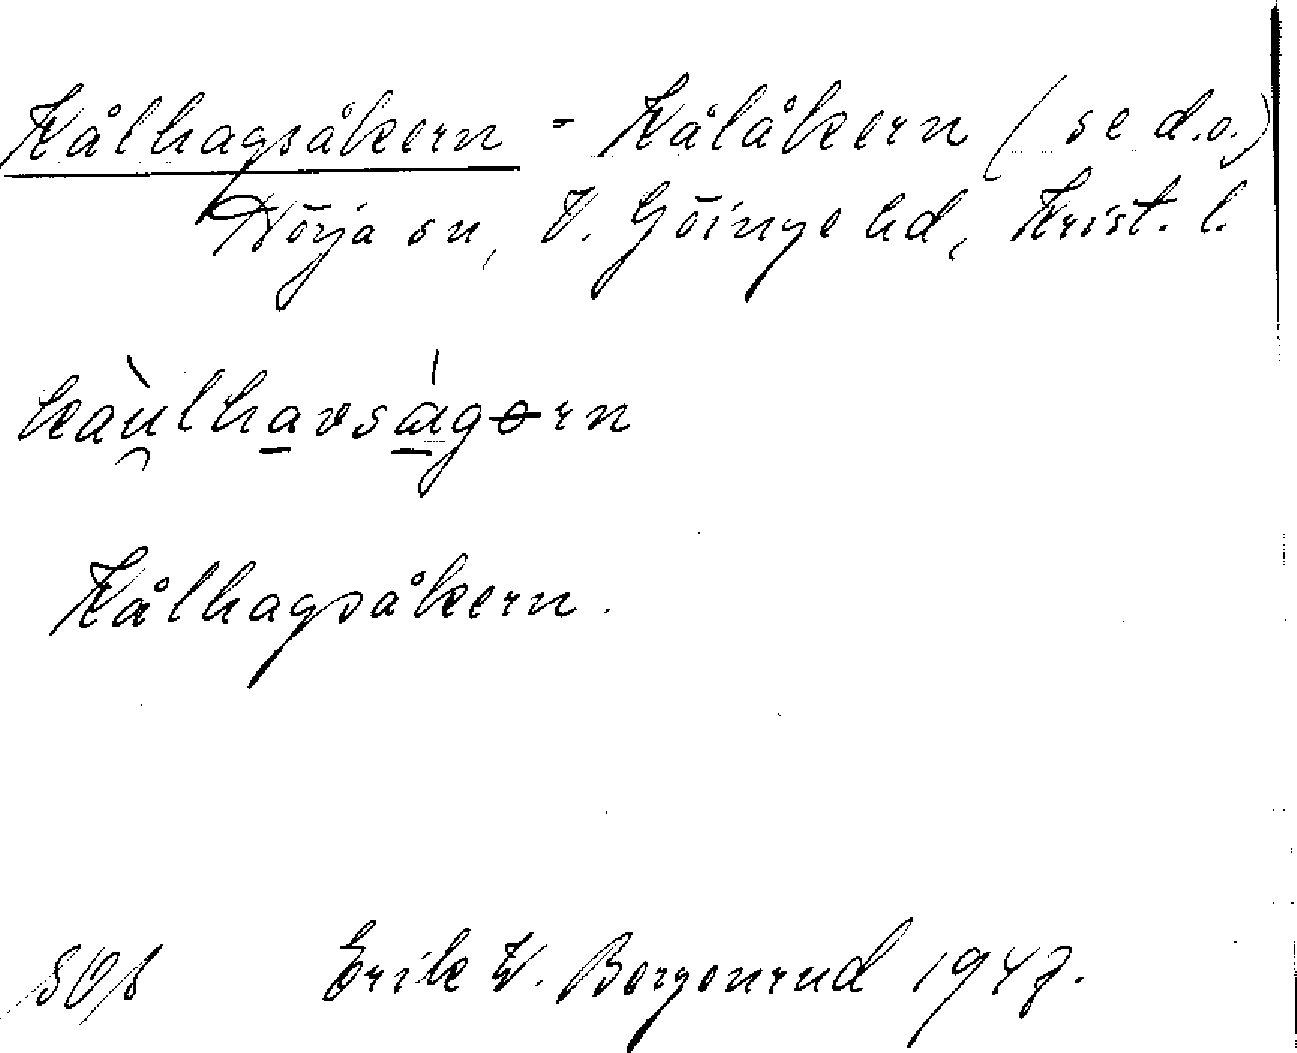 Kålhagsåkern - Kålåkern (se d.o.)
Nörja sn, V. Göinge hd, Krist. l.
Kålhagsåkern.
Erik W. Borgenrud 1947.